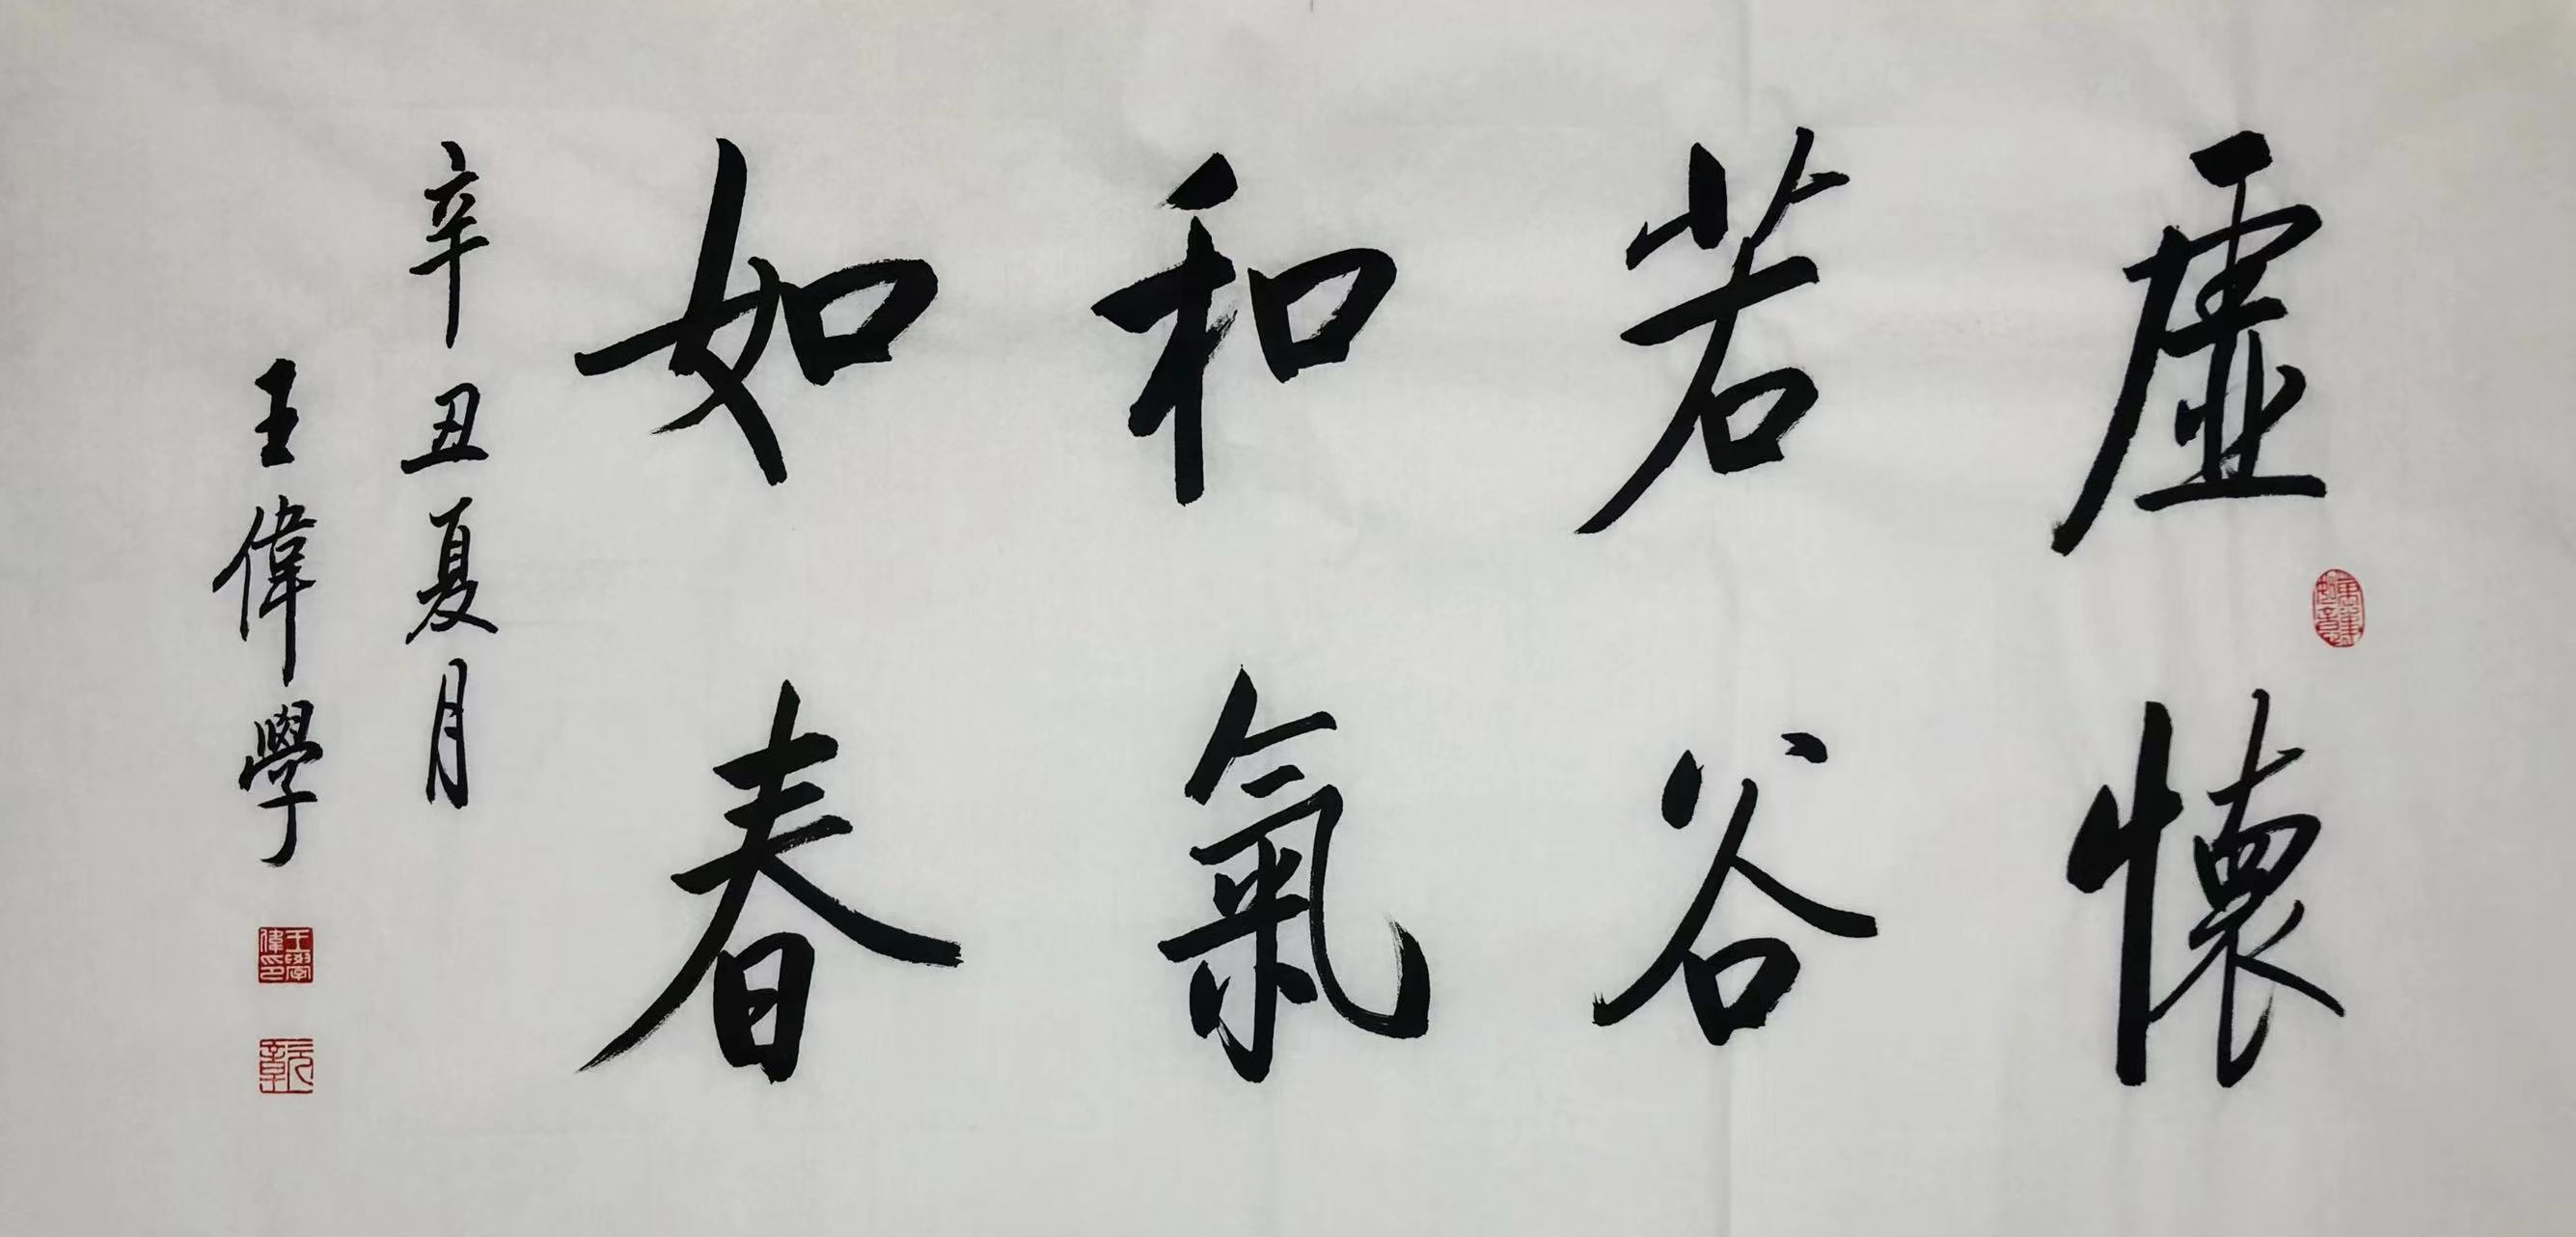 虛懷
若谷
和氣
如春
辛丑夏月
王偉學
王學偉印